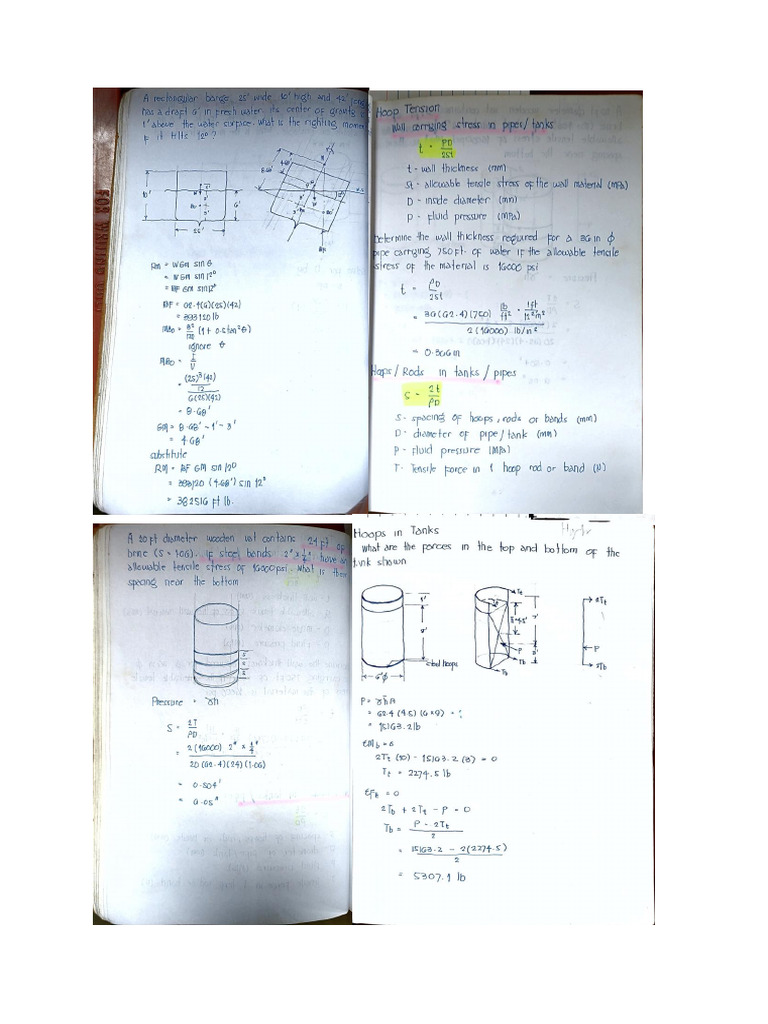 A rectangular barge, 25' wide 10' high and 42' long
has a draft 6' in fresh water. its center of gravity is
1' above the water surface. what is the righting moment
if it tilts 12° ?
10'
6'
25'
RM = W GM sin θ
= W GM sin 12°
= BF GM sin 12°
BF = 62.4 (6)(25)(42)
= 393120 lb
(1 + 0.5 tan² θ)
ignore θ
MBo = I/V
= (25)³(42)
12
6(25)(42)
= 8.68'
GM = 8.68' - 1' - 3'
= 4.68'
substitute
RM = BF GM sin 12°
= 393120 (4.68') sin 12°
= 382516 ft lb.
Hoop Tension
Wall carrying stress in pipes/tanks
t = PD
2St
t - wall thickness (mm)
St - allowable tensile stress of the wall material (MPa)
D - inside diameter (mm)
P - fluid pressure (MPa)
Determine the wall thickness required for a 36 in ϕ
pipe carrying 750 ft. of water if the allowable tensile
stress of the material is 16000 psi
t = PD
2St
= 36 (62.4) (750) lb/ft² · 1ft²/12²in²
2 (16000) lb/in²
= 0.366 in
Hoops / Rods in tanks / pipes
S = 2t
PD
S - spacing of hoops, rods or bands (mm)
D - diameter of pipe/tank (mm)
P - fluid pressure (MPa)
T - Tensile force in 1 hoop rod or band (N)
A 20 ft diameter wooden vat contains 24 ft of
brine (S = 1.06). if steel bands 2" x 1/4" have an
allowable tensile stress of 16000 psi. what is their
spacing near the bottom
Pressure = γh
S = 2T
PD
= 2 (16000) 2" x 1/4"
20 (62.4) (24) (1.06)
= 0.504'
= 6.05"
Hoops in Tanks
what are the forces in the top and bottom of the
tank shown
1'
9'
6' ϕ
Tt
P
Tb
Tb
2Tt
P
2Tb
P = γh̄A
= 62.4 (4.5) (6 x 9)
= 15163.2 lb
ΣMb = 0
2Tt (10) - 15163.2 (3) = 0
Tt = 2274.5 lb
= 0
2Tb + 2Tt - P = 0
Tb = P - 2Tt
2
= 15163.2 - 2(2274.5)
2
= 5307.1 lb